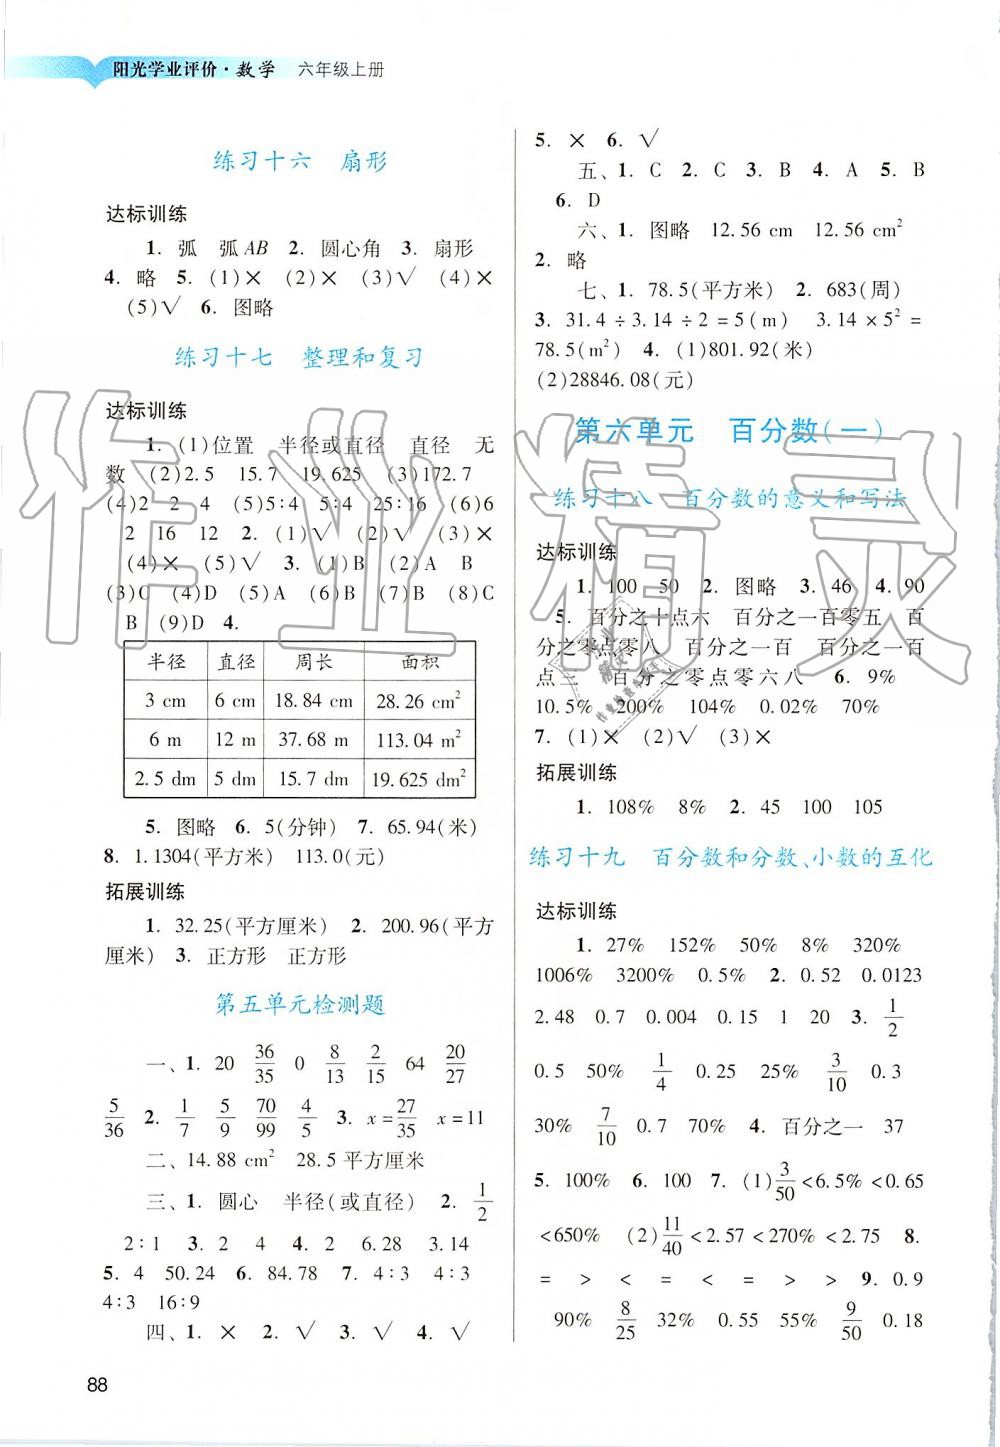 阳光学业评价·数学 六年级上册
练习十六 扇形
达标训练
1. 弧 弧AB 2. 圆心角 3. 扇形
4. 略 5. (1)× (2)× (3)√ (4)×
(5)√ 6. 图略
练习十七 整理和复习
达标训练
1. (1)位置 半径或直径 直径 无
数 (2)2.5 15.7 19.625 (3)172.7
(4)2 2 4 (5)5∶4 5∶4 25∶16 (6)6
2 16 12 2. (1)√ (2)√ (3)×
(4)× (5)√ 3. (1)B (2)A
(3)C (4)D (5)A (6)B (7)B (8)C
B (9)D 4.
半径 直径 周长 面积
3 cm 6 cm 18.84 cm 28.26 cm²
6 m 12 m 37.68 m 113.04 m²
2.5 dm 5 dm 15.7 dm 19.625 dm²
5. 图略 6. 5(分钟) 7. 65.94(米)
8. 1.1304(平方米) 113.0(元)
拓展训练
1. 32.25(平方厘米) 2. 200.96(平方
厘米) 3. 正方形 正方形
第五单元检测题
一、1. 20 36/35 0 8/13 2/15 64 20/27
5/36 2. 1/7 5/9 70/99 4/5 3. x=27/35 x=11
二、14.88 cm² 28.5平方厘米
三、1. 圆心 半径(或直径) 2. 1/2
2∶1 3. 2 4 4. 2 6.28 3.14
5. 4 50.24 6. 84.78 7. 4∶3 4∶3
4∶3 16∶9
四、1. × 2. √ 3. √ 4. √
88
5. × 6. √
五、1. C 2. C 3. B 4. A 5. B
6. D
六、1. 图略 12.56 cm 12.56 cm²
2. 略
七、1. 78.5(平方米) 2. 683(周)
3. 31.4÷3.14÷2=5(m) 3.14×5²=
78.5(m²) 4. (1)801.92(米)
(2)28846.08(元)
第六单元 百分数(一)
练习十八 百分数的意义和写法
达标训练
1. 100 50 2. 图略 3. 46 4. 90
5. 百分之十点六 百分之一百零五 百
分之零点零八 百分之一百 百分之一百
点三 百分之零点零六八 6. 9%
10.5% 200% 104% 0.02% 70%
7. (1)× (2)√ (3)×
拓展训练
1. 108% 8% 2. 45 100 105
练习十九 百分数和分数、小数的互化
达标训练
1. 27% 152% 50% 8% 320%
1006% 3200% 0.5% 2. 0.52 0.0123
2.48 0.7 0.004 0.15 1 20 3. 1/2
0.5 50% 1/4 0.25 25% 3/10 0.3
30% 7/10 0.7 70% 4. 百分之一 37
5. 100% 6. 100 7. (1)3/50<6.5%<0.65
<650% (2)11/40<2.57<270%<2.75 8.
= > < = < = > > 9. 0.9
90% 8/25 32% 0.55 55% 9/50 0.18
作业精灵